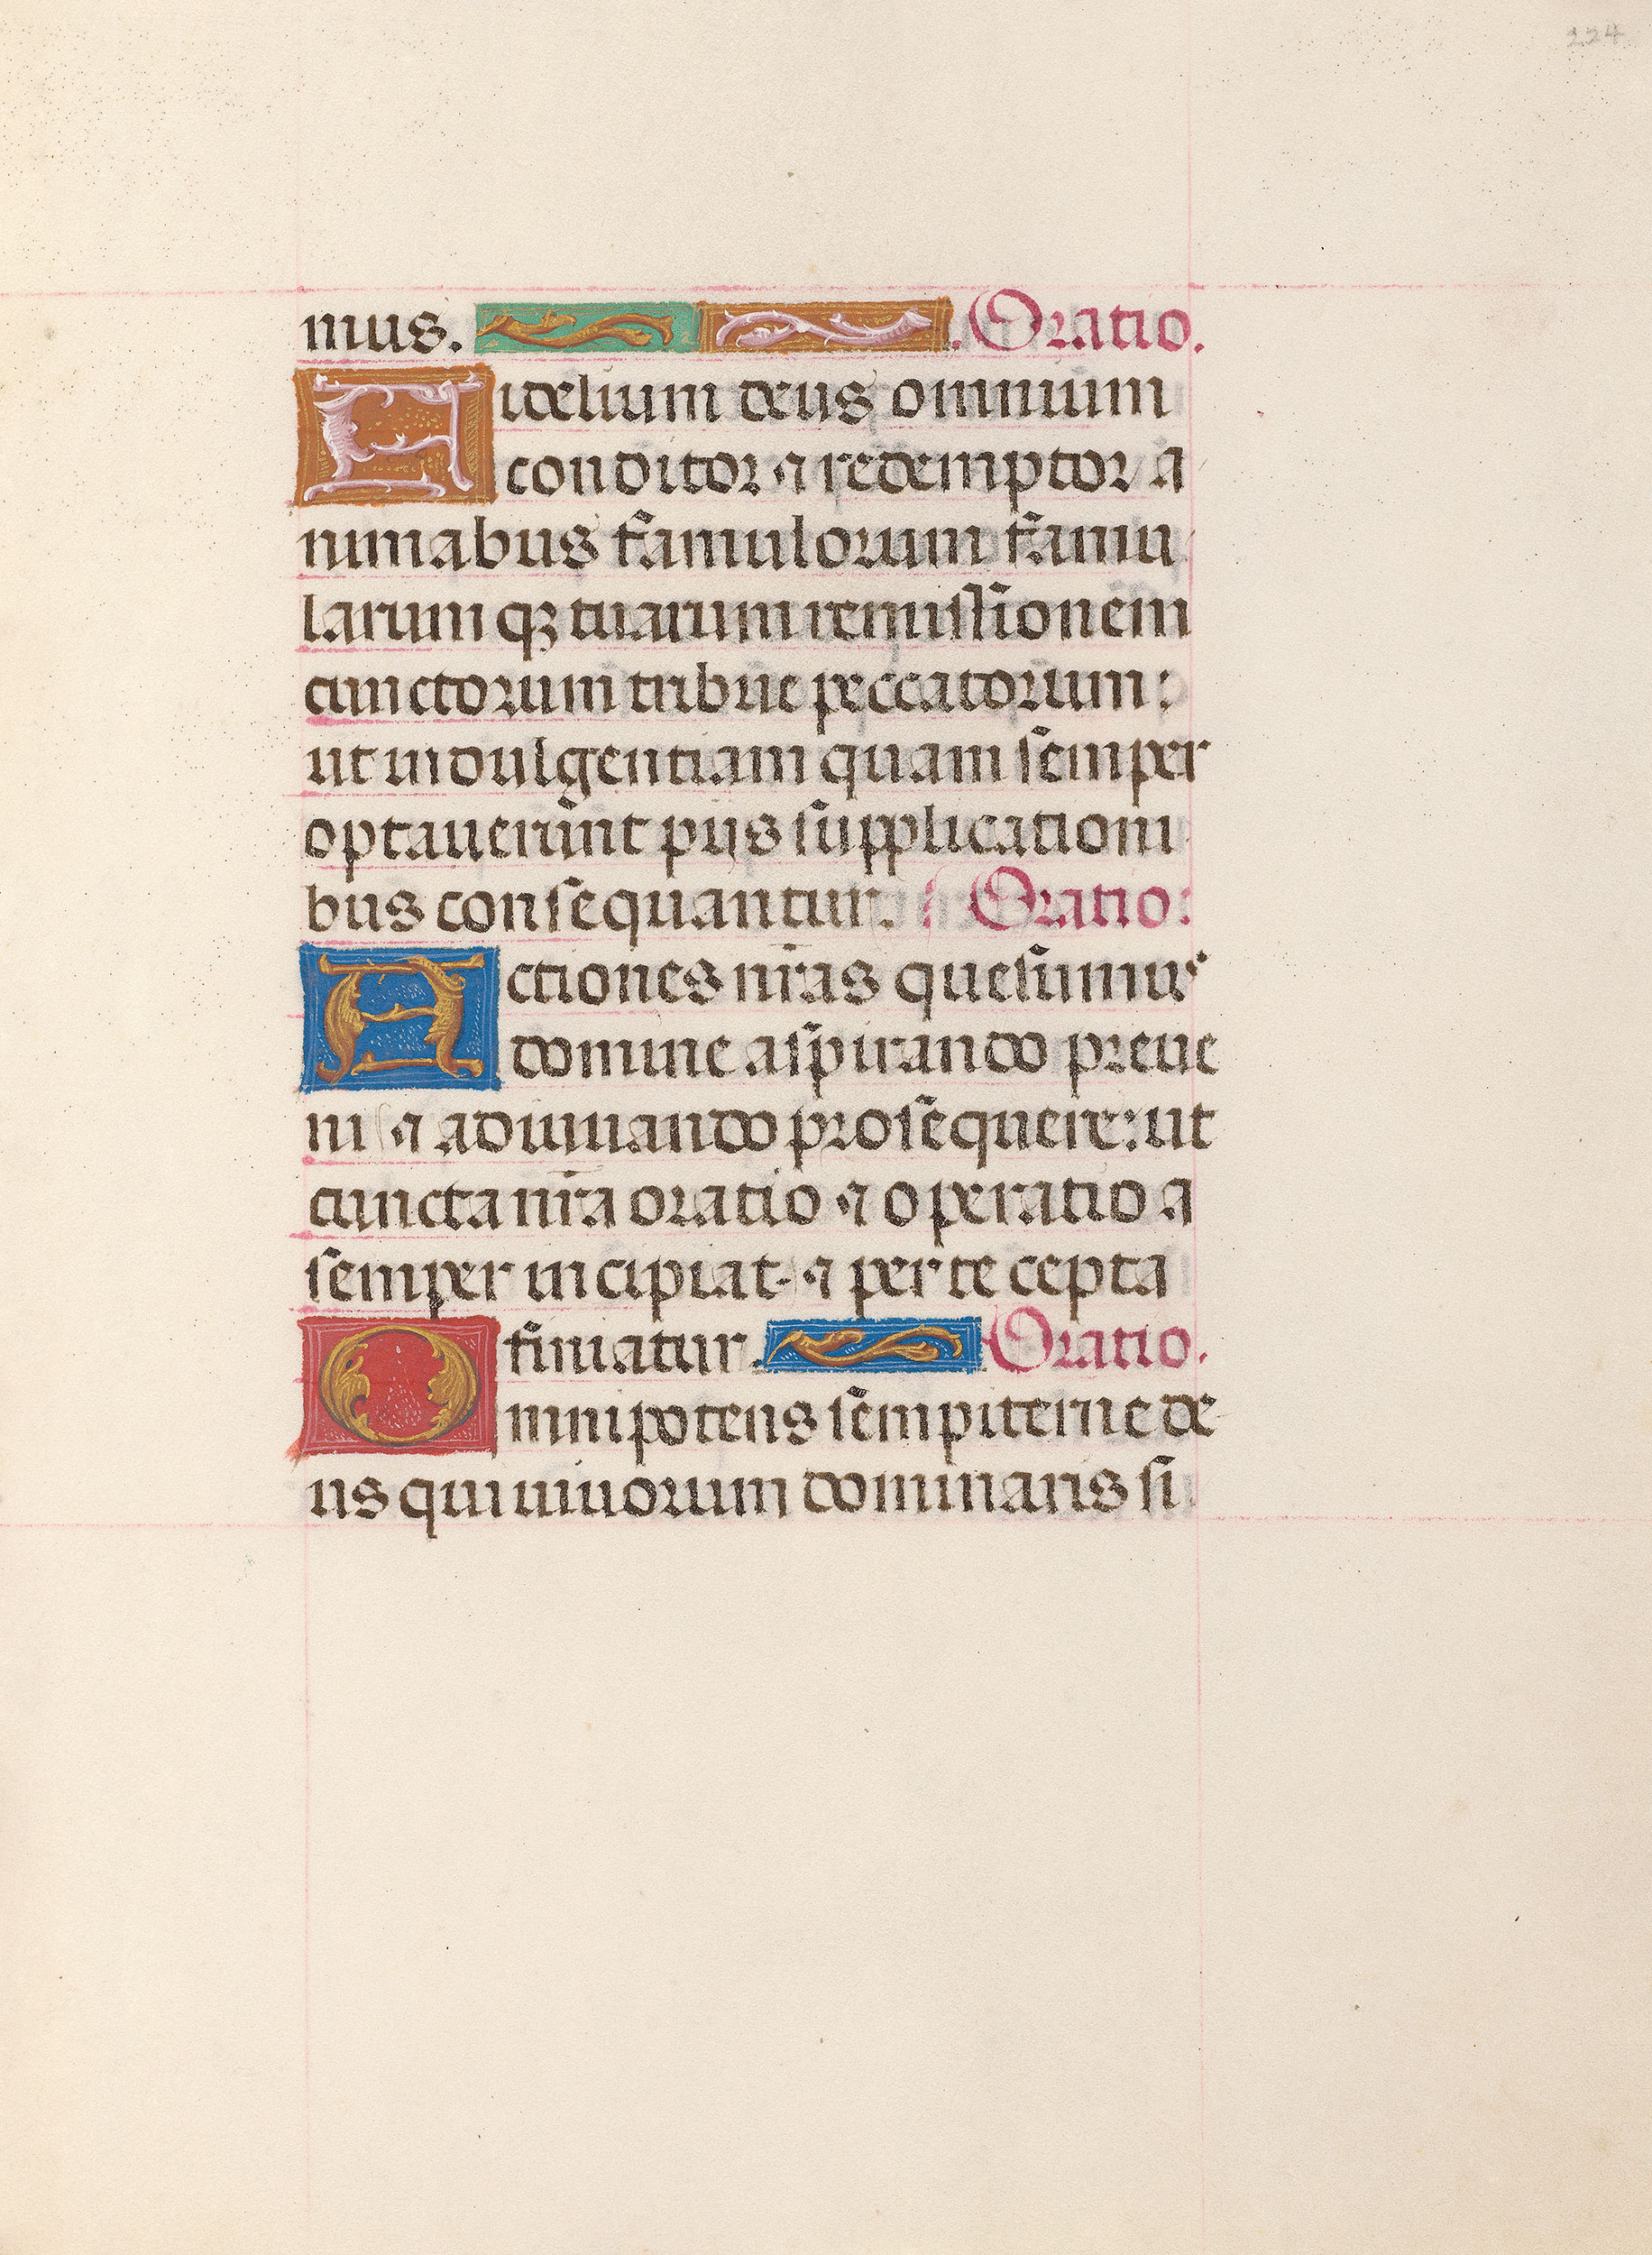 224
mus. Oratio.
Fidelium deus omnium
conditor ⁊ redemptor a
nimabus famulorum famu
larum qꝫ tuarum remissionem
cunctorum tribue peccatorum:
ut indulgentiam quam semper
optauerunt pijs supplicationi
bus consequantur. Oratio:
Actiones nr̄as quesumus
domine aspirando preue
ni ⁊ adiuuando prosequere: ut
cuncta nr̄a oratio ⁊ operatio a
semper incipiat. ⁊ per te cepta
finiatur. Oratio.
Omnipotens sempiterne de
us qui uiuorum dominaris si